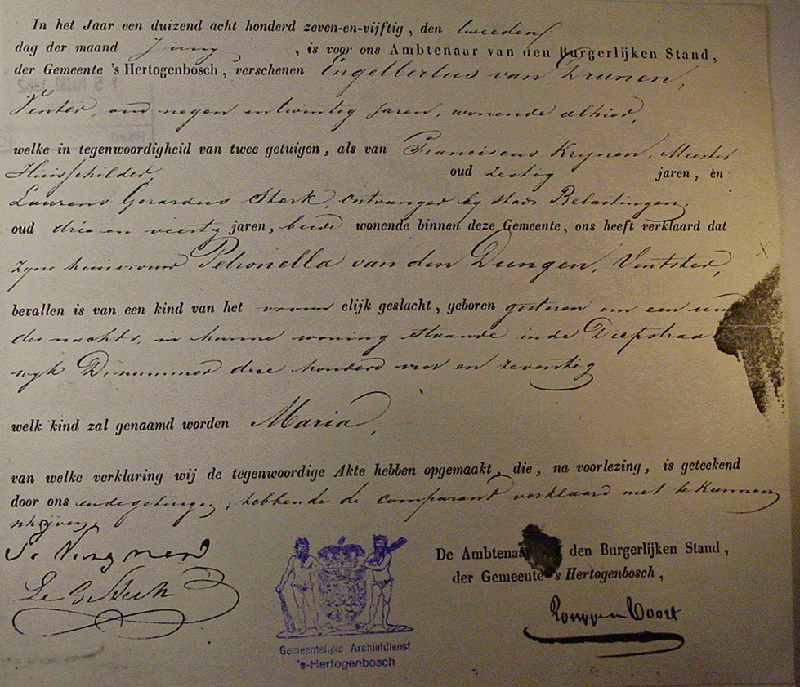 In het Jaar een duizend acht honderd zeven-en-vijftig, den tweeden
dag der maand Juny, is voor ons Ambtenaar van den Burgerlijken Stand,
der Gemeente 's Hertogenbosch, verschenen Engelbertus van Drunen,
Venter, oud negen en twintig jaren, wonende alhier,
welke in tegenwoordigheid van twee getuigen, als van Franciscus Krynen, Meester
Huisschilder oud zestig jaren, en
Laurens Gerardus Sterk, ontvanger by stads Belastingen,
oud drie en veertig jaren, beide wonende binnen deze Gemeente, ons heeft verklaard dat
zyne huisvrouw Petronella van den Dungen, Ventster,
bevallen is van een kind van het vrouwelijk geslacht, geboren gisteren om een uur
des nachts, in hunne woning staande in de Diepstraat
wyk D nummer drie honderd vier en zeventig
welk kind zal genaamd worden Maria,
van welke verklaring wij de tegenwoordige Akte hebben opgemaakt, die, na voorlezing, is geteekend
door ons en de getuigen, hebbende de comparant verklaard niet te kunnen
schrijven
De Ambtenaar den Burgerlijken Stand,
der Gemeente 's Hertogenbosch,
Gemeentelijke Archiefdienst
's-Hertogenbosch